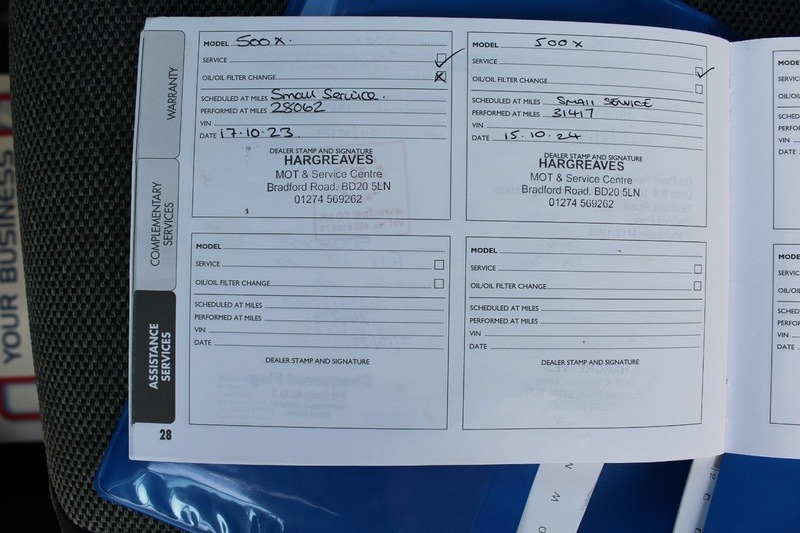 WARRANTY
COMPLEMENTARY
SERVICES
ASSISTANCE
SERVICES
28
YOUR BUSINESS
MODEL 500X.
SERVICE
OIL/OIL FILTER CHANGE
SCHEDULED AT MILES Small Service.
PERFORMED AT MILES 28062
VIN
DATE 17.10.23.
DEALER STAMP AND SIGNATURE
HARGREAVES
MOT & Service Centre
Bradford Road, BD20 5LN
01274 569262
MODEL 500X
SERVICE
OIL/OIL FILTER CHANGE
SCHEDULED AT MILES SMALL SERVICE
PERFORMED AT MILES 31417
VIN
DATE 15.10.24
DEALER STAMP AND SIGNATURE
HARGREAVES
MOT & Service Centre
Bradford Road, BD20 5LN
01274 569262
MODEL
SERVICE
OIL/OIL FILTER CHANGE
SCHEDULED AT MILES
PERFORMED AT MILES
VIN
DATE
DEALER STAMP AND SIGNATURE
MODEL
SERVICE
OIL/OIL FILTER CHANGE
SCHEDULED AT MILES
PERFORMED AT MILES
VIN
DATE
DEALER STAMP AND SIGNATURE